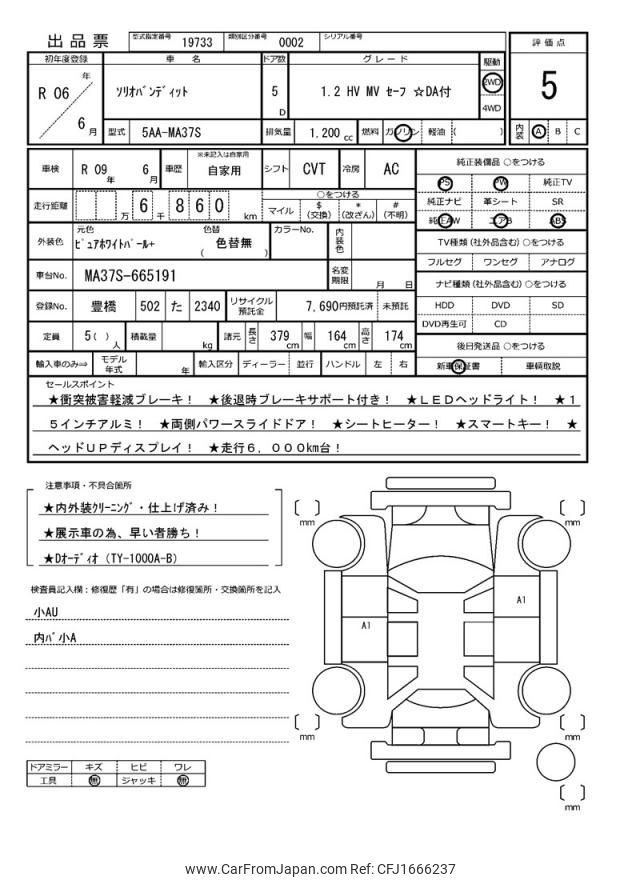 出品票 型式指定番号 19733 類別区分番号 0002 シリアル番号
評価点
5
内装 A B C
初年度登録 車名 ドア数 グレード 駆動
R 06 年 6 月
ソリオバンディット
5 D
1.2 HV MV セーフ ☆DA付
2WD
4WD
型式 5AA-MA37S 排気量 1,200 cc 燃料 ガソリン 軽油 ( )
車検 R 09 年 6 月 車歴 ※未記入は自家用 自家用 シフト CVT 冷房 AC
走行距離 万 6 千 8 6 0 km
○をつける
マイル $(交換) *(改ざん) #(不明)
外装色 元色 ピュアホワイトパール+ 色替 ( 色替無 ) カラーNo. 内装色
車台No. MA37S-665191 名変期限 月 日
登録No. 豊橋 502 た 2340 リサイクル預託金 7,690円預託済 未預託
定員 5( ) 人 積載量 kg 諸元 長さ 379 cm 幅 164 cm 高さ 174 cm
輸入車のみ⇒ モデル年式 年 輸入区分 ディーラー 並行 ハンドル 左 右
純正装備品 ○をつける
PS PW 純正TV
純正ナビ 革シート SR
純正AW エアB ABS
TV種類 (社外品含む) ○をつける
フルセグ ワンセグ アナログ
ナビ種類 (社外品含む) ○をつける
HDD DVD SD
DVD再生可 CD
後日発送品 ○をつける
新車保証書 車輌取説
セールスポイント
★衝突被害軽減ブレーキ！ ★後退時ブレーキサポート付き！ ★ＬＥＤヘッドライト！ ★１
５インチアルミ！ ★両側パワースライドドア！ ★シートヒーター！ ★スマートキー！ ★
ヘッドＵＰディスプレイ！ ★走行６，０００km台！
注意事項・不具合箇所
★内外装クリーニング・仕上げ済み！
★展示車の為、早い者勝ち！
★Dオーディオ (TY-1000A-B)
検査員記入欄：修復歴「有」の場合は修復箇所・交換箇所を記入
小AU
内バ小A
ドアミラー キズ ヒビ ワレ
工具 無 ジャッキ 無
[ ] mm
[ ] mm
A1
A1
[ ] mm
[ ] mm
[ ] mm
www.CarFromJapan.com Ref: CFJ1666237